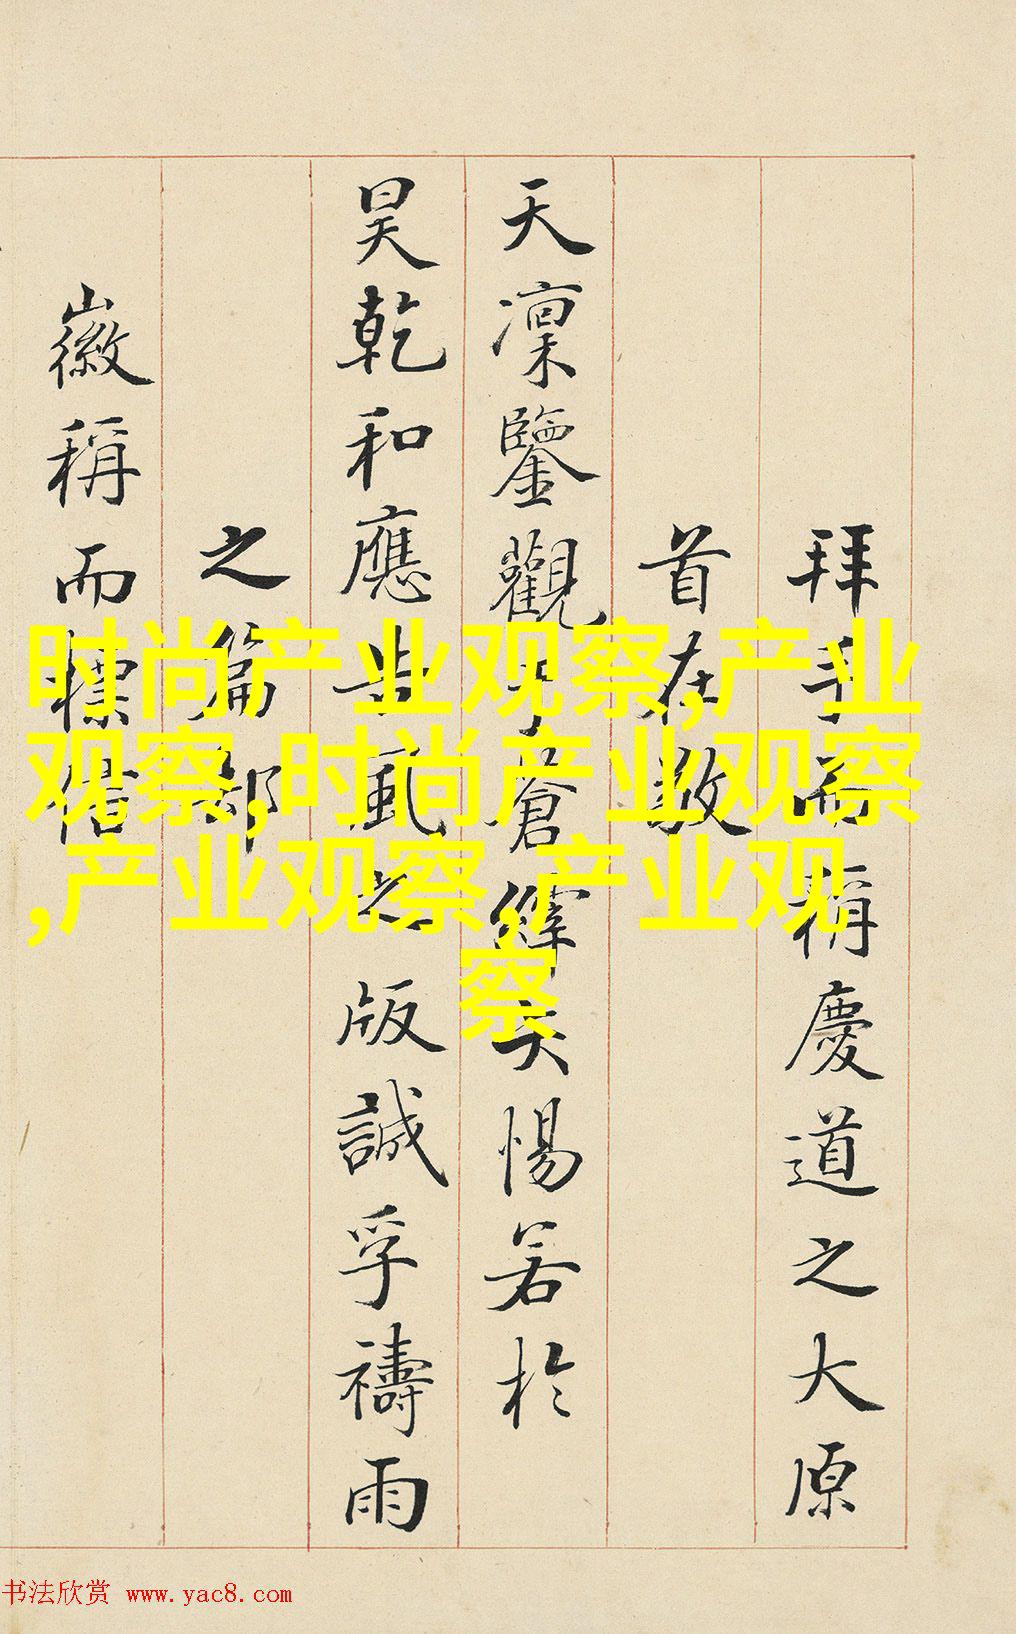 拜手而稱慶道之大原
首在敬
天凜鑒觀于蒼縡惕若於
昊乾和應占風之版誠孚禱雨
之篇
徽稱而
时尚产业观察,产业
观察,时尚产业观察
,产业观察,产业观
察
书法欣赏 www.yac8.com